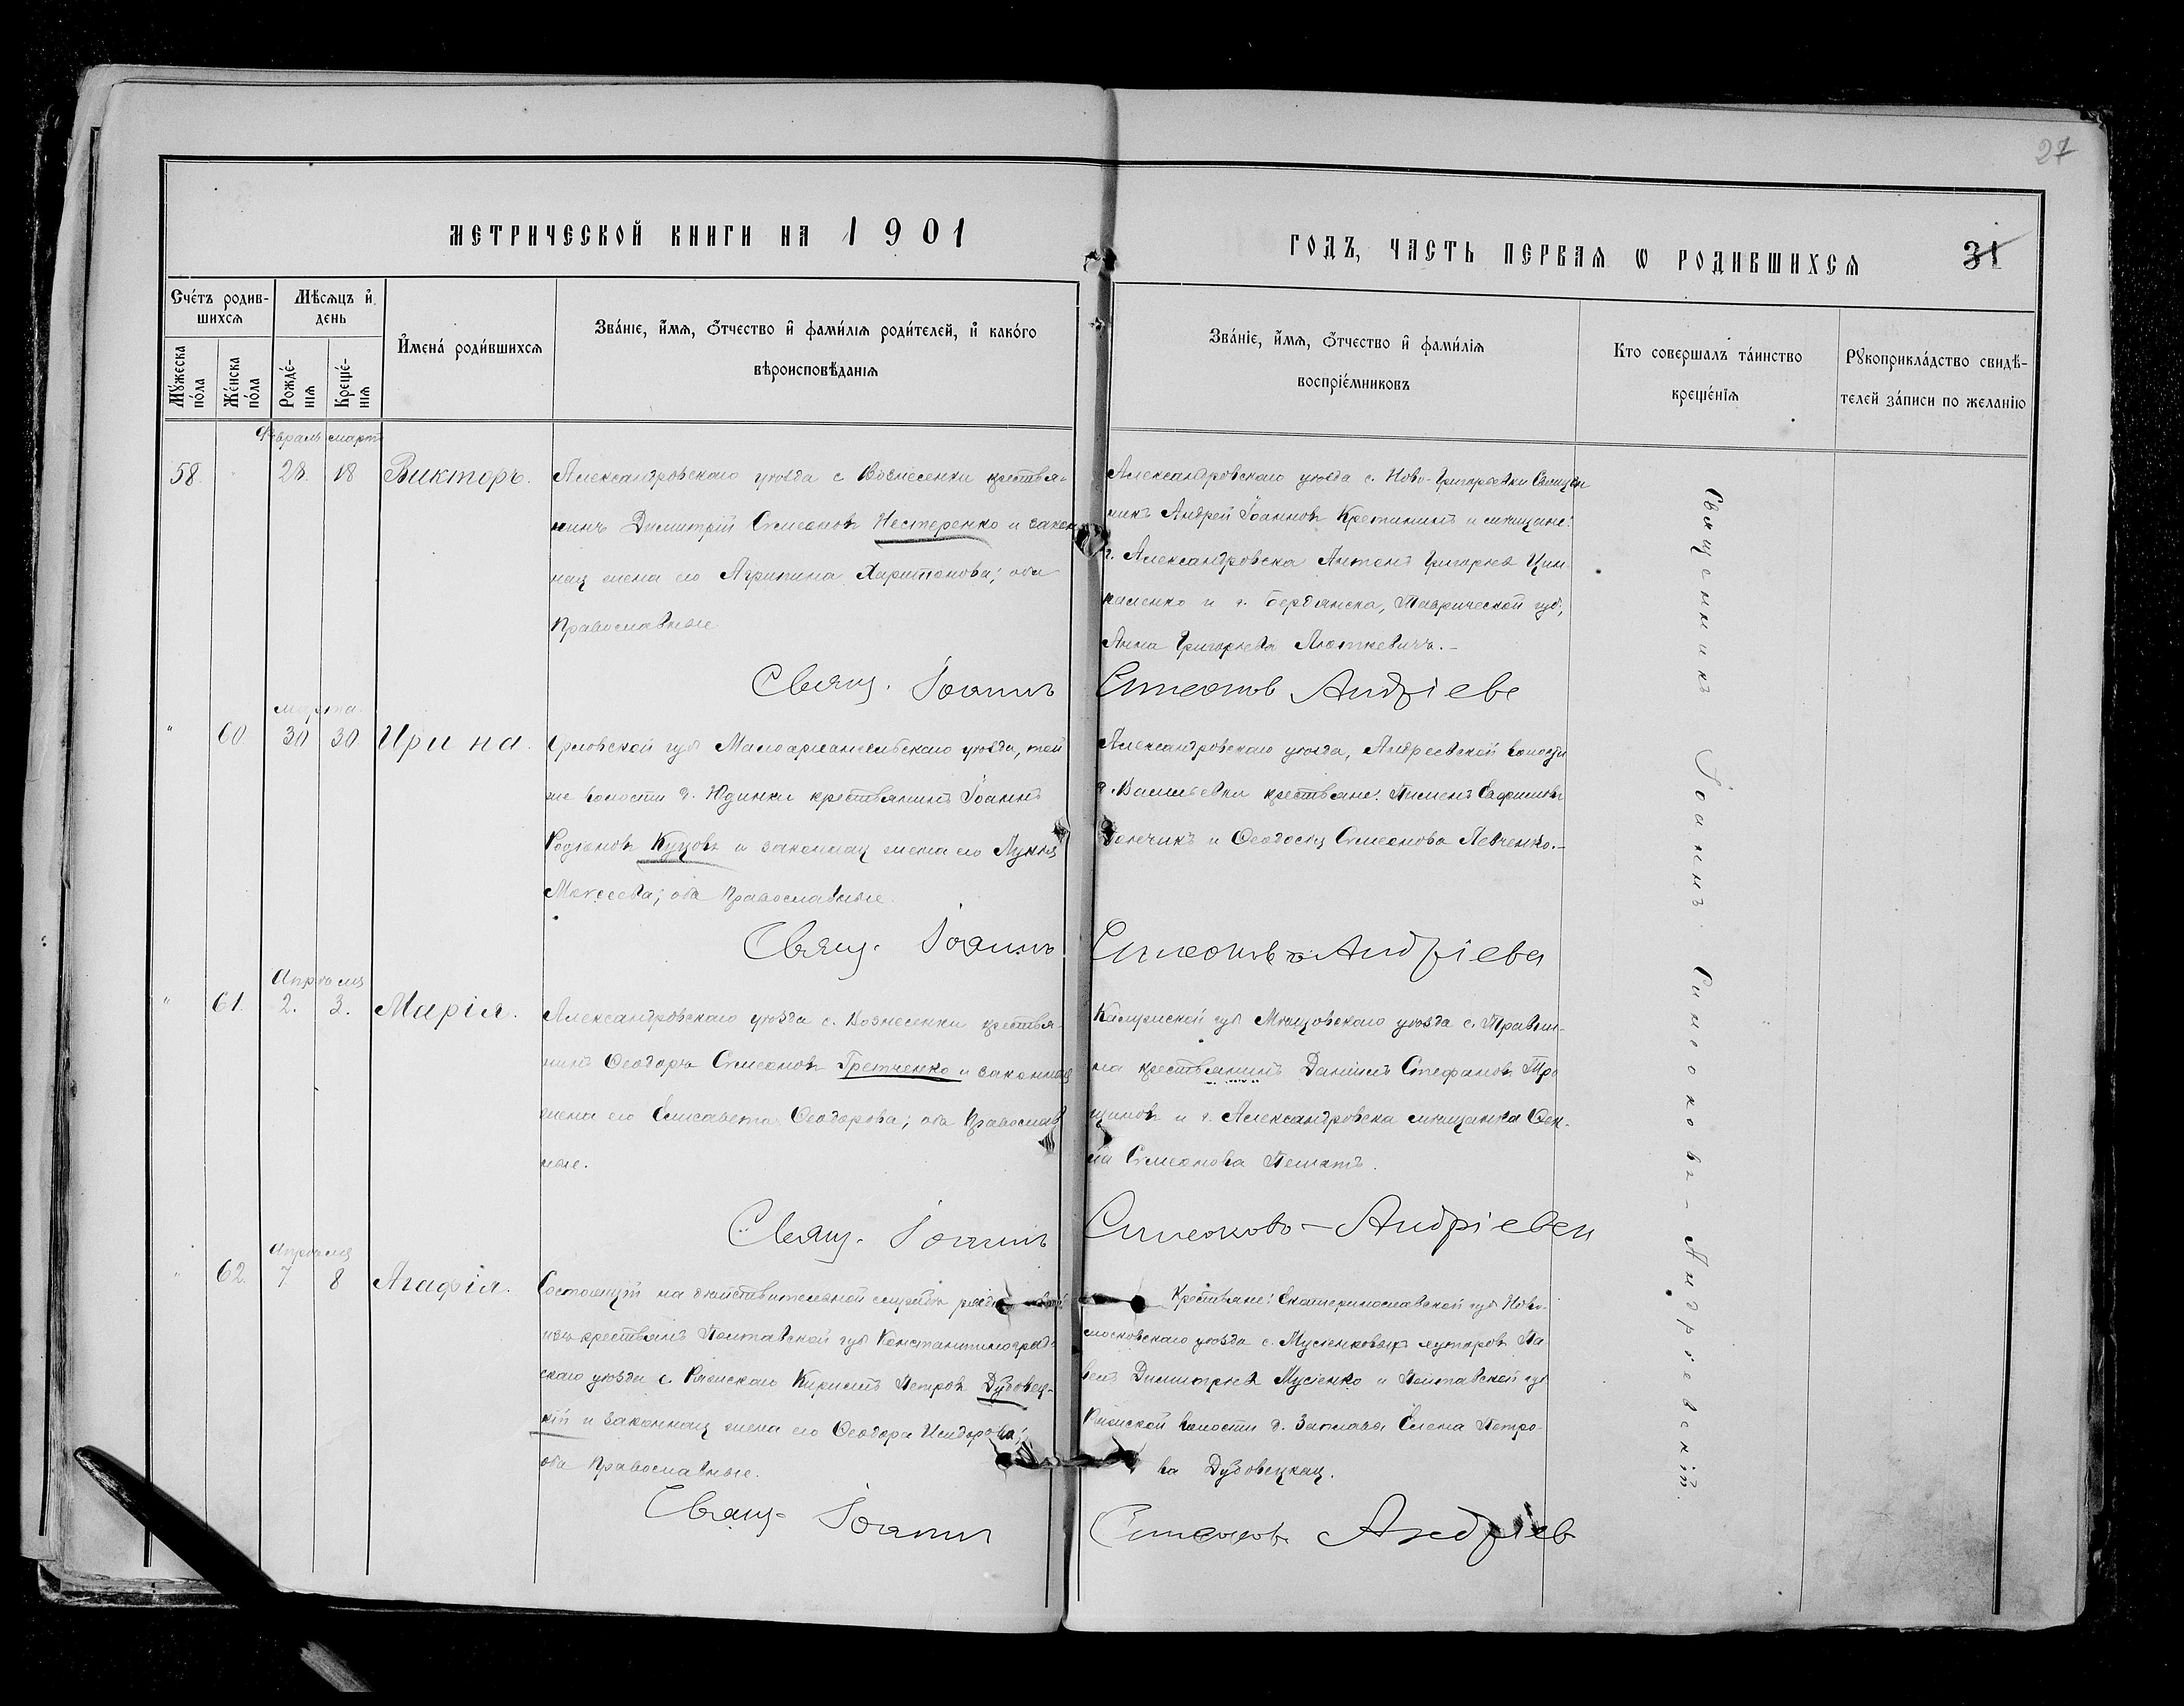 27
МЕТРИЧЕСКОЙ КНИГИ НА 1901
ГОДЪ, ЧАСТЬ ПЕРВАЯ Ѡ РОДИВШИХСЯ
31
Счетъ родив-
шихся
Мѣсяцъ и
день
Мужеска
пола
Женска
пола
Рожде-
нія
Креще-
нія
Имена родившихся
Званіе, имя, отчество и фамилія родителей, и какого
вѣроисповѣданія
Званіе, имя, отчество и фамилія
воспріемниковъ
Кто совершалъ таинство
крещенія
Рукоприкладство свидѣ-
телей записи по желанію
Февраль мартъ
58. 28. 18 Викторъ.
Александровскаго уѣзда с Вознесенки крестья-
нинъ Димитрій Симеоновъ Нестеренко и закон
ная жена его Агрипина Харитонова; оба
Православные
Александровскаго уѣзда с. Ново-Григорьевки Священ
никъ Андрей Іоанновъ Кретининъ и мѣщане:
г. Александровска Антонъ Григорьев
и г. Бердянска, Таврической губ,
Анна Григорьева Люткевичъ.-
Свящ. Іоаннъ Симеоновъ Андріевс
Марта
" 60 30 30 Ирина.
Орловской губ Малоархангельскаго уѣзда, той
же волости д. Юдинки крестьянинъ Іоаннъ
Родіоновъ Куцовъ и законная жена его Лукія
Моѵсеева; оба Православные.
Александровскаго уѣзда, Андреевской волости
д. Васильевки крестьяне: Пименъ
и Ѳеодосія Симеонова Левченко.-
Свящ. Іоаннъ Симеоновъ-Андріевск
Апрѣля
" 61. 2. 3. Марія.
Александровскаго уѣзда с. Вознесенки крестья-
нинъ Ѳеодоръ Симеоновъ Гретченко и законная
жена его Елисавета Ѳеодорова; оба Православ
ные.
Калужской губ Мещовскаго уѣзда с.
крестьянинъ Даніилъ Стефановъ Тро
щиновъ и г. Александровска мѣщанка Ѳек-
ла Симеонова
Свящ. Іоаннъ Симеоновъ-Андріевск
Апрѣля
" 62. 7 8 Агафія.
Состоящій на дѣйствительной службѣ
изъ крестьянъ Полтавской губ Константиноград-
скаго уѣзда с. Ряскаго Кириллъ Петровъ Дубовец-
кій и законная жена его Ѳеодора Исидорова;
оба Православные.
Крестьяне: Екатеринославской губ Ново-
московскаго уѣзда с. Мусіенковыхъ хуторовъ Па
велъ Димитріевъ Мусіенко и Полтавской губ
Ряской волости д. Заплавы Елена Петро
ва Дубовецкая.
Свящ. Іоаннъ Симеоновъ Андріев
Священникъ Іоаннъ Симеоновъ-Андріевскій.